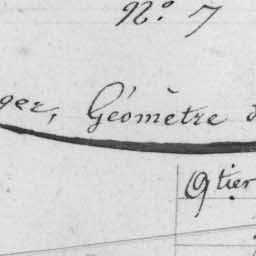 N.º 7
ger, Géomètre d
Qtier